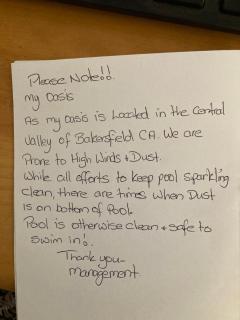 Please Note!!.
my Oasis
As my Oasis is Located in the Central
Valley of Bakersfield CA. We are
Prone to High Winds + Dust.
While all efforts to keep pool sparkling
clean, there are times when Dust
is on bottom of Pool.
Pool is otherwise clean + safe to
swim in!.
Thank you-
management